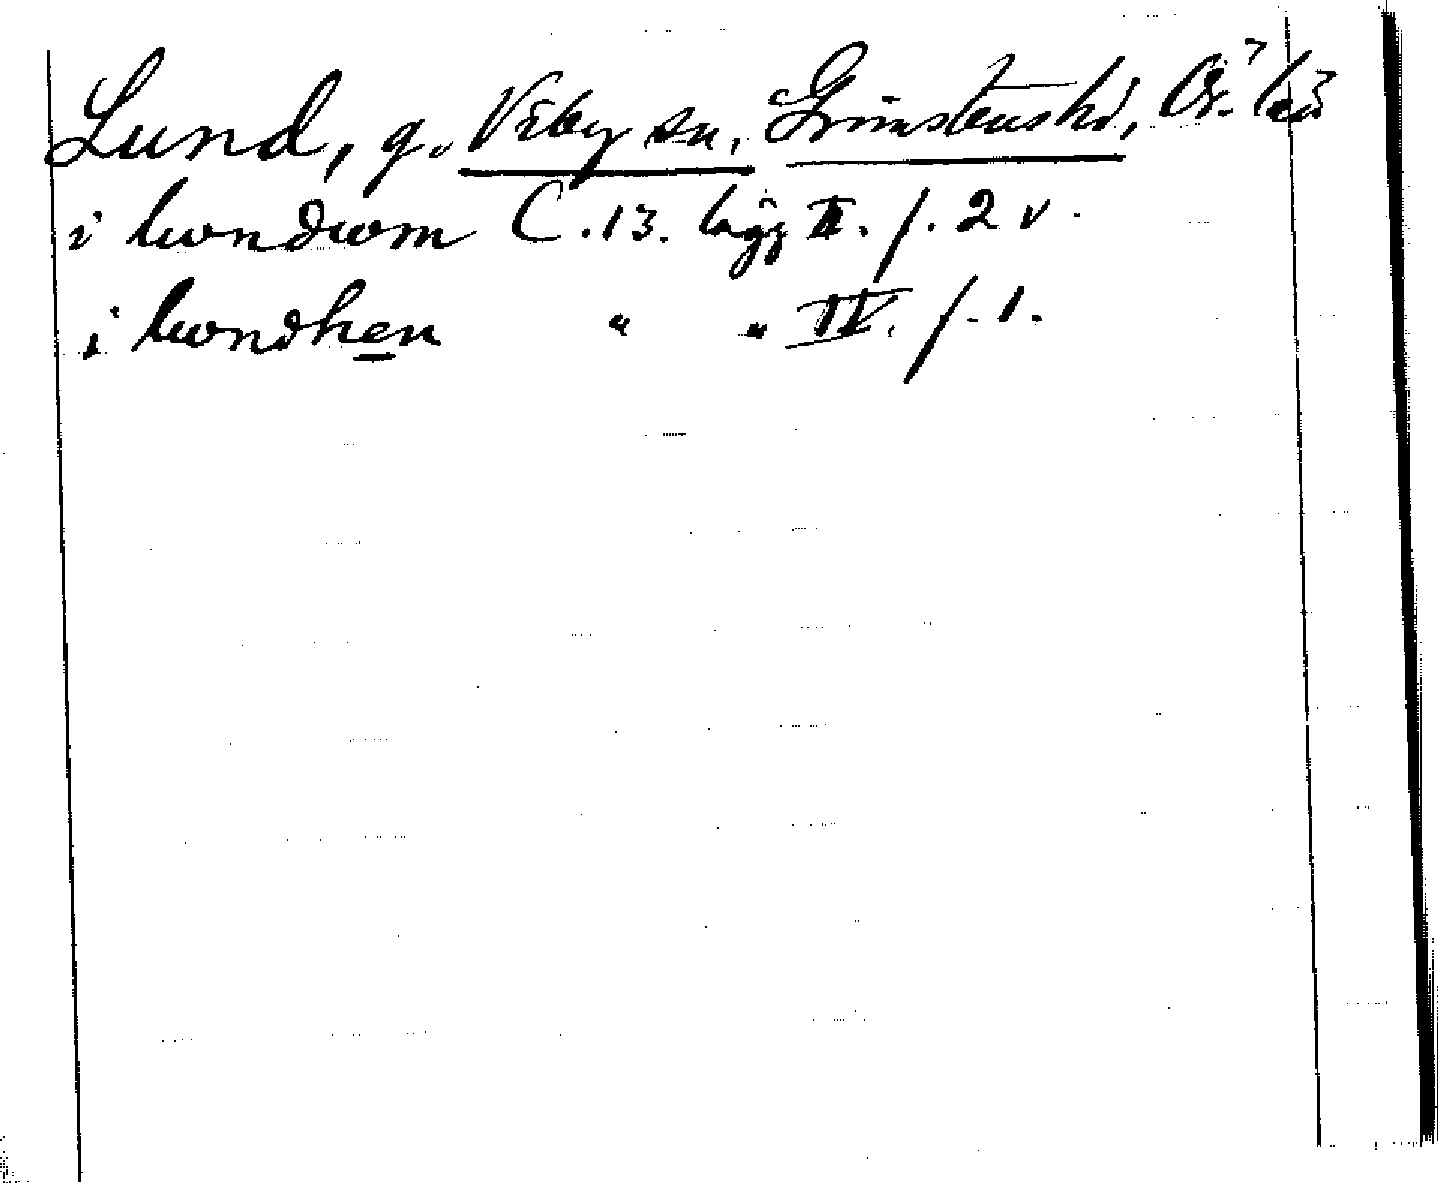 Lund, g. Viby sn, Grimstens hd, Ör. län
i lwndwm C. 13. lägg II. f. 2 v.
i lwndhen " " IV. f. 1.